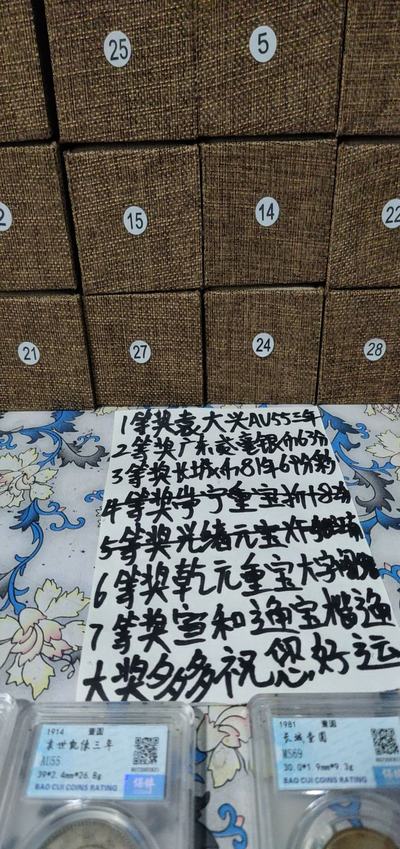 25
5
2
15
14
22
21
27
24
28
1等奖袁大头AU55三年
2等奖广东贰毫银币63分
3等奖长城币81年69分彩
4等奖 宁重宝折十82
5等奖光绪元宝
6等奖乾元重宝大字
7等奖宣和通宝楷通
大奖多多祝您好运
1914 壹圆
袁世凯像三年
AU55
39*2.4mm*26.8g
BAO CUI COINS RATING
保粹
1981 壹圆
长城壹圆
MS69
30.0*1.9mm*9.3g
BAO CUI COINS RATING